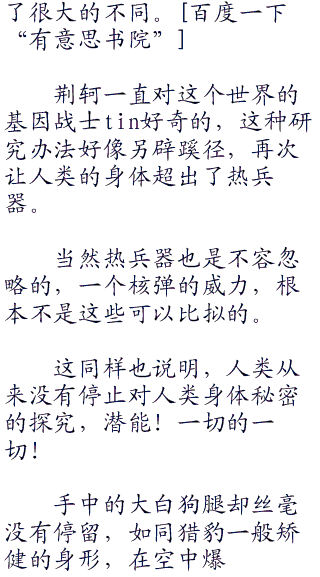 了很大的不同。[百度一下
“有意思书院”]
荆轲一直对这个世界的
基因战士tin好奇的，这种研
究办法好像另辟蹊径，再次
让人类的身体超出了热兵
器。
当然热兵器也是不容忽
略的，一个核弹的威力，根
本不是这些可以比拟的。
这同样也说明，人类从
来没有停止对人类身体秘密
的探究，潜能！一切的一
切！
手中的大白狗腿却丝毫
没有停留，如同猎豹一般矫
健的身形，在空中爆